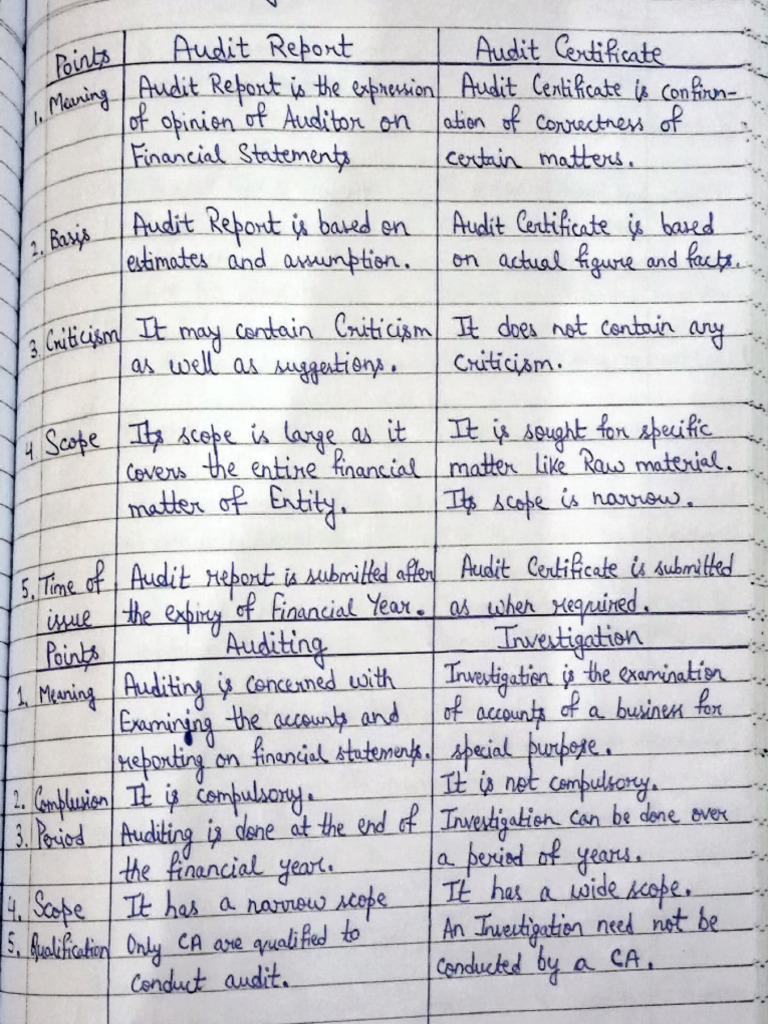 Points Audit Report Audit Certificate
1. Meaning Audit Report is the expression Audit Certificate is confirm-
of opinion of Auditor on ation of correctness of
Financial Statements certain matters.
2. Basis Audit Report is based on Audit Certificate is based
estimates and assumption. on actual figure and facts.
3. Criticism It may contain Criticism It does not contain any
as well as suggestions. Criticism.
4 Scope Its scope is large as it It is sought for specific
covers the entire financial matter like Raw material.
matter of Entity. Its scope is narrow.
5. Time of Audit report is submitted after Audit Certificate is submitted
issue the expiry of Financial Year. as when required.
Points Auditing Investigation
1. Meaning Auditing is concerned with Investigation is the examination
Examining the accounts and of accounts of a business for
reporting on financial statements. special purpose.
2. Complusion It is compulsory. It is not compulsory.
3. Period Auditing is done at the end of Investigation can be done over
the financial year. a period of years.
4. Scope It has a narrow scope It has a wide scope.
5. Qualification Only CA are qualified to An Investigation need not be
Conduct audit. Conducted by a CA.